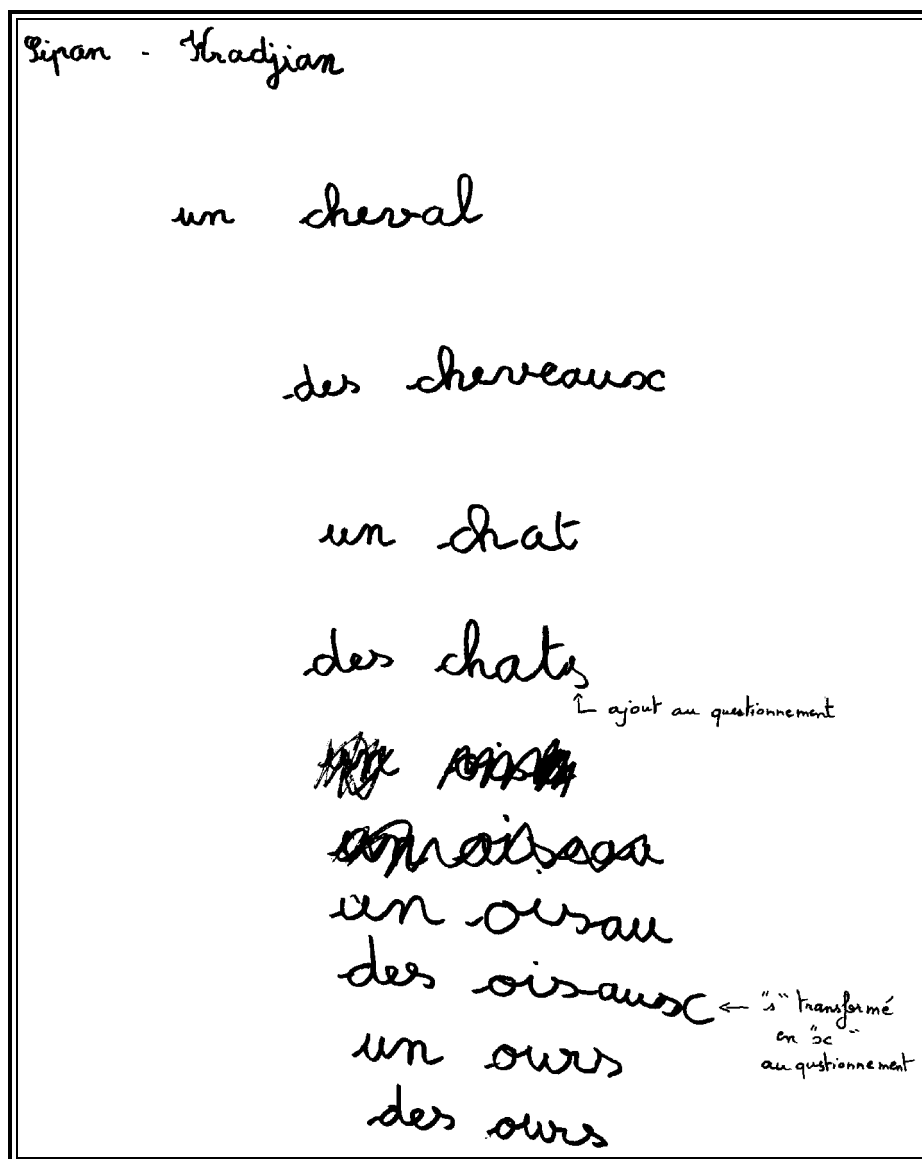 Sipan - Kradjian
un cheval
des cheveaux
un chat
des chats
ajout au questionnement
un oisau
des oisaux ← "s" transformé
en "x"
au qustionnement
un ours
des ours